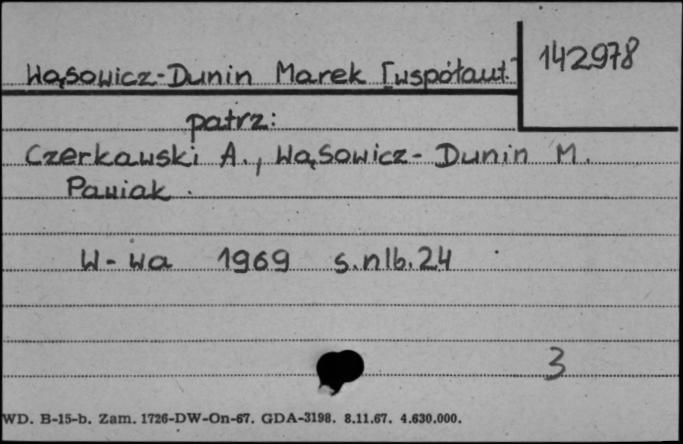 Wąsowicz-Dunin Marek [współaut.] 142978
patrz:
Czerkawski A., Wąsowicz-Dunin M.
Pawiak.
W-wa 1969 s.nlb.24
3
WD. B-15-b. Zam. 1726-DW-On-67. GDA-3198. 8.11.67. 4.630.000.